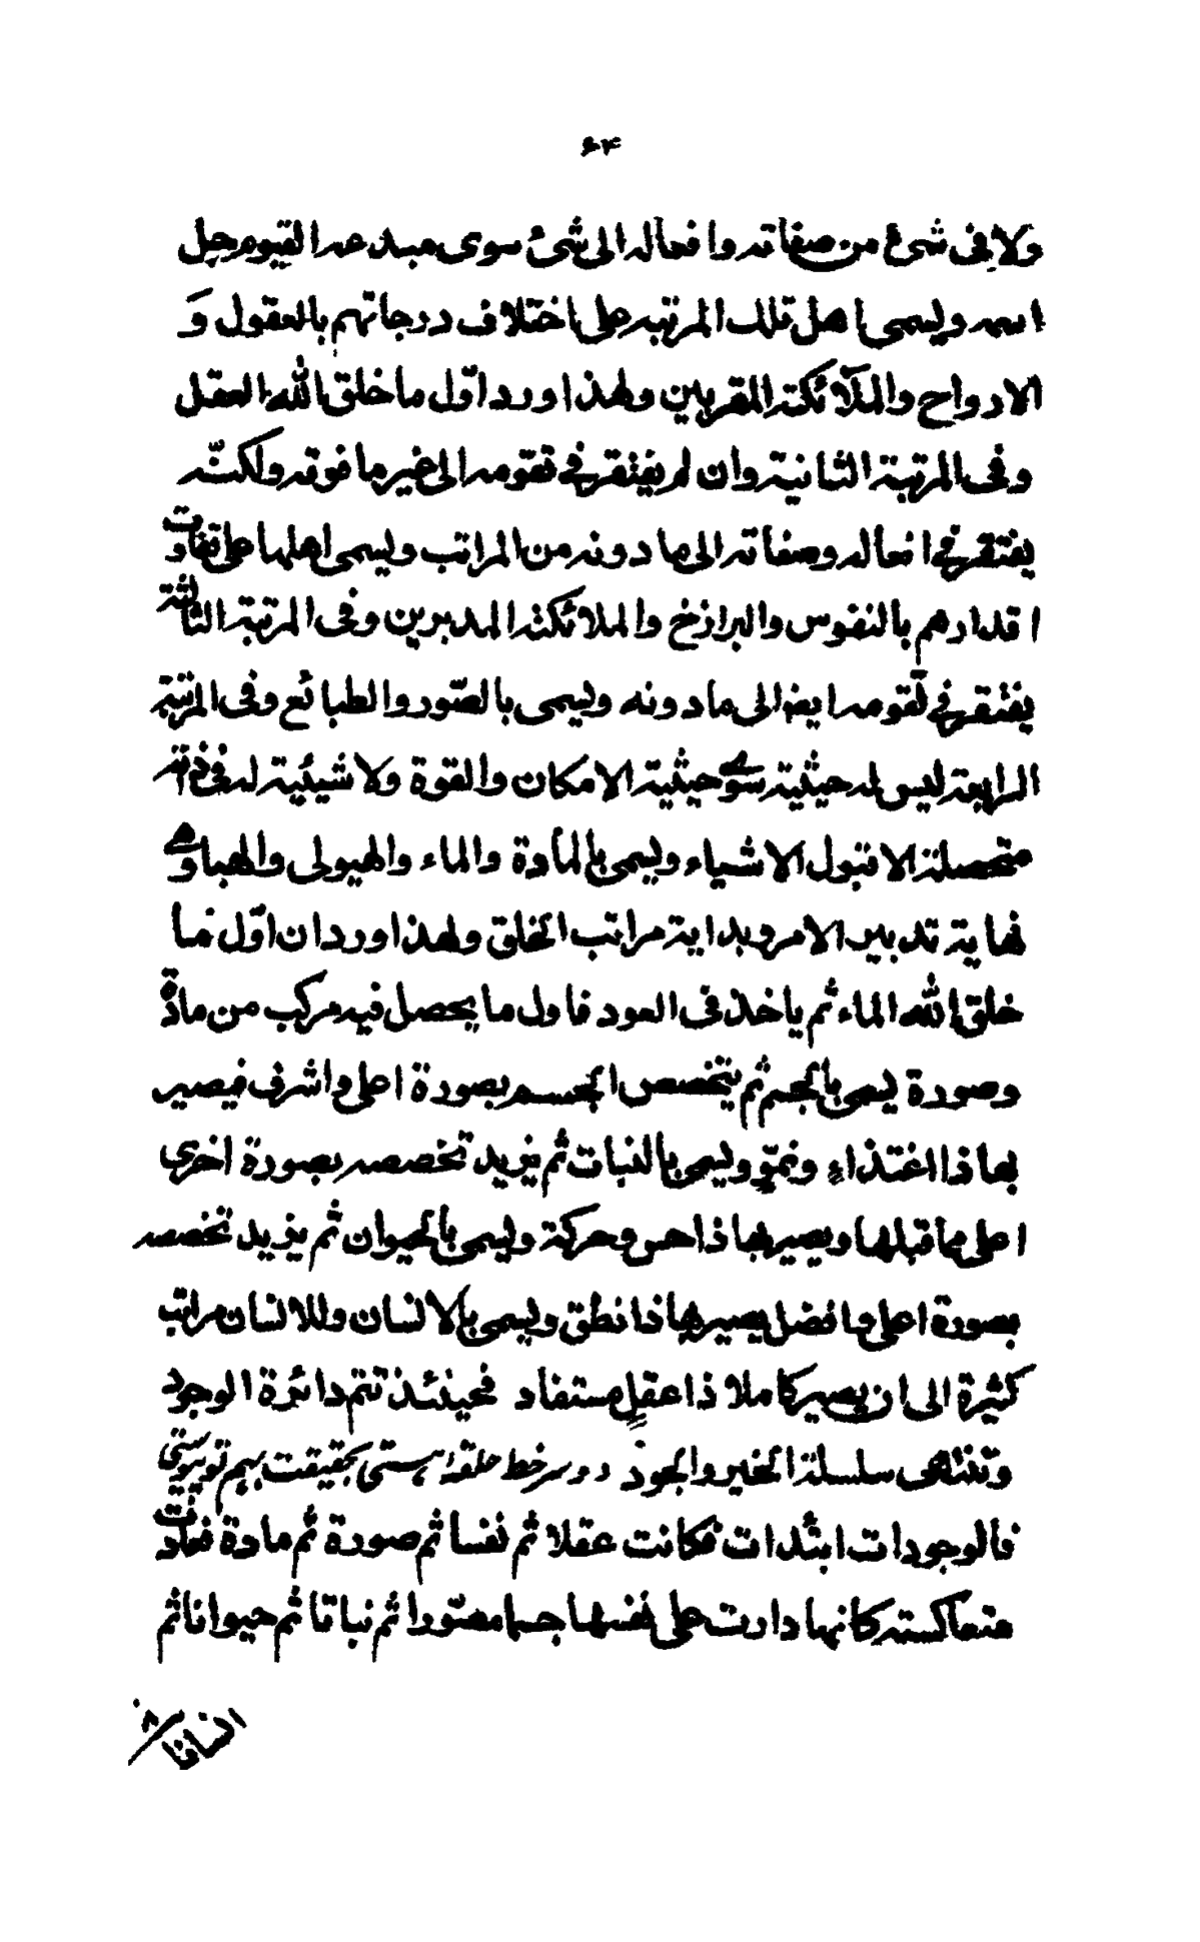 ۶۴
ولا في شئ من صفاته وافعاله الى شئ سوى مبدعه القيوم جل
اسمه وليسمى اهل تلك المرتبه على اختلاف درجاتهم بالعقول وَ
الارواح والملآئكة المقربين ولهذا ورد اوّل ما خلق الله العقل
وفى المرتبة الثانية وان لم يفتقر في تقومه الى غير ما فوقه ولكنّه
يفتقر في افعاله وصفاته الى ما دونه من المراتب ويسمى اهلها على تفاوت
اقدارهم بالنفوس والبرازخ والملائكة المدبرين وفى المرتبة الثالثة
يفتقر في تقومه ايضا الى ما دونه وليسمى بالصّور والطبائع وفى المرتبة
الرابعة ليس له حيثية سوى حيثية الامكان والقوة ولا شيئية له في ذاته
متحصلة الا قبول الاشياء ويسمى بالمادة والماء والهيولى والهباء وهى
نهاية تدبير الامر وبداية مراتب الخلق ولهذا ورد ان اوّل ما
خلق الله الماء ثم ياخذ فى العود فاول ما يحصل فيه مركب من مادة
وصورة يسمى بالجسم ثم يتخصص الجسم بصورة اعلى واشرف فيصير
بها ذا اغتذاءٍ ونموّ وليسمى بالنبات ثم يزيد تخصصه بصورة اخرى
اعلى مما قبلها ويصير بها ذا حس وحركة وليسمى بالحيوان ثم يزيد تخصصه
بصورة اعلى وافضل يصير بها ذا نطق ويسمى بالانسان وللانسان مراتب
كثيرة الى ان يصير كاملا ذا عقلٍ مستفاد فحينئذ تتم دائرة الوجود
وتنتهى سلسلة الخير والجود دو سر خط حلقهٔ هستى بحقيقت بهم تو پيوستى
فالوجودات ابتدات فكانت عقلا ثم نفسا ثم صورة ثم مادة فعادت
متعاكسة كانها دارت على نفسها جسما مصّورا ثم نباتا ثم حيوانا ثم
انسانا